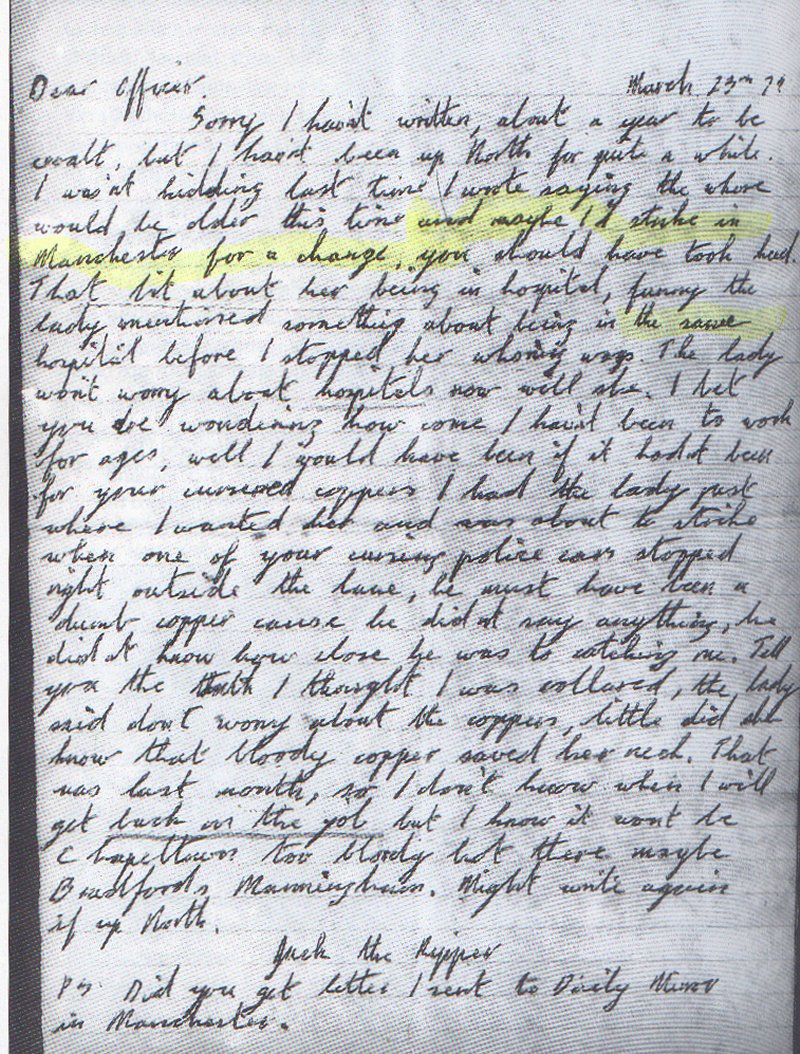 Dear Officer.
March 23rd 79
Sorry I havn't written, about a year to be
exalt, but I havn't been up North for quite a while.
I was'nt kidding last time I wrote saying the whore
would be older this time and maybe I'd strike in
Manchester for a change, you should have took heed.
That bit about her being in hospital, funny the
lady mentioned something about being in the same
hospital before I stopped her whoring ways. The lady
won't worry about hospitals now will she. I bet
you are wondering how come I hav'nt been to work
for ages, well I would have been if it hadnt been
for your cursered coppers I had the lady just
where I wanted her and was about to strike
when one of your cursing police cars stopped
right outside the lane, he must have been a
dumb copper cause he didnt say anything, he
didnt know how close he was to catching me. Tell
you the truth I thought I was collared, the lady
said dont worry about the coppers, little did she
know that bloody copper saved her neck. That
was last month, so I don't know when I will
get back on the job but I know it wont be
Chapeltown too bloody hot there maybe
Bradfords Manningham. Might write again
if up North.
Jack the Ripper
PS. Did you get letter I sent to Daily Mirror
in Manchester.